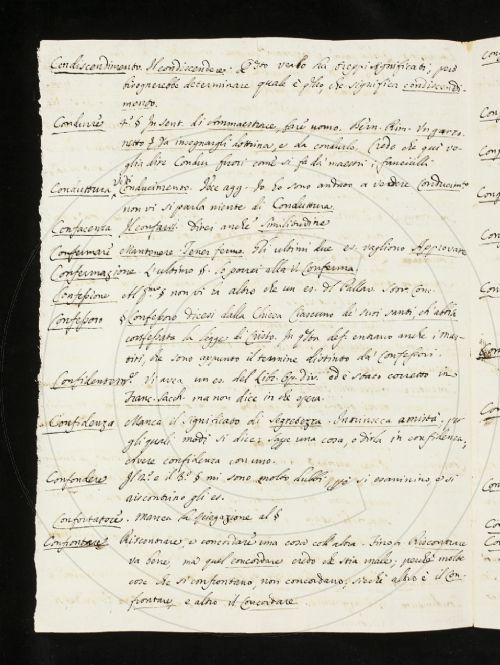 Condiscendimento. Il condiscendere. Questo verbo ha troppi significati; però
bisognerebbe determinare quale è quello che significa condiscendi-
mento.
Condurre 4.° § In sent. di ammaestrare, fare uomo. Bern. Rim. Un garzo-
netto § Da insegnargli dottrina, e da condurlo. Credo che qui vo-
glia dire Condur fuori come si fa da' maestri i fanciulli.
Conduttura Vedi Conducimento. Dice agg. Io ho sono andato a vedere Conducimto
non vi si parla niente di Conduttura.
Confacenza Il confarsi. Direi anche Similitudine
Confermare Mantenere. Tener fermo. Gli ultimi due es. vagliono Approvare
Confermazione L'ultimo §. si ponesi alla il Conferma.
Confessione Al § non vi ha altro che un es. del Pallav. Stor. Conc.
Confessoro § Confessoro dicesi dalla Chiesa Ciascuno de' suoi santi, ch'abbia
confessata la legge di Cristo. In def. entrano anche i Mar-
tiri, che sono appunto il termine distinto da' Confessori.
Confidentemte. Vi avea un es. del Libr. Op. div. ed è stato corretto in
Franc. Sacch. ma non dice in che opera.
Confidenza Manca il significato di Segretezza. Intrinseca amistà, per
gli quali modi si dice: sappi una cosa, o dirla in confidenza,
Avere confidenza con uno.
Confondere Il 2.° e il 3.° § mi sono molto dubbi si esaminino, e si
riscontrino gli es.
Confortatore. Manca la spiegazione al §
Confrontare Riscontrare, e concordare una cosa coll'altra. Fino a Riscontrare
va bene, ma quel concordare credo che stia male; perchè molte
cose che si confrontano, non concordano; sicchè altro è il Con-
frontare, e altro il Concordare.